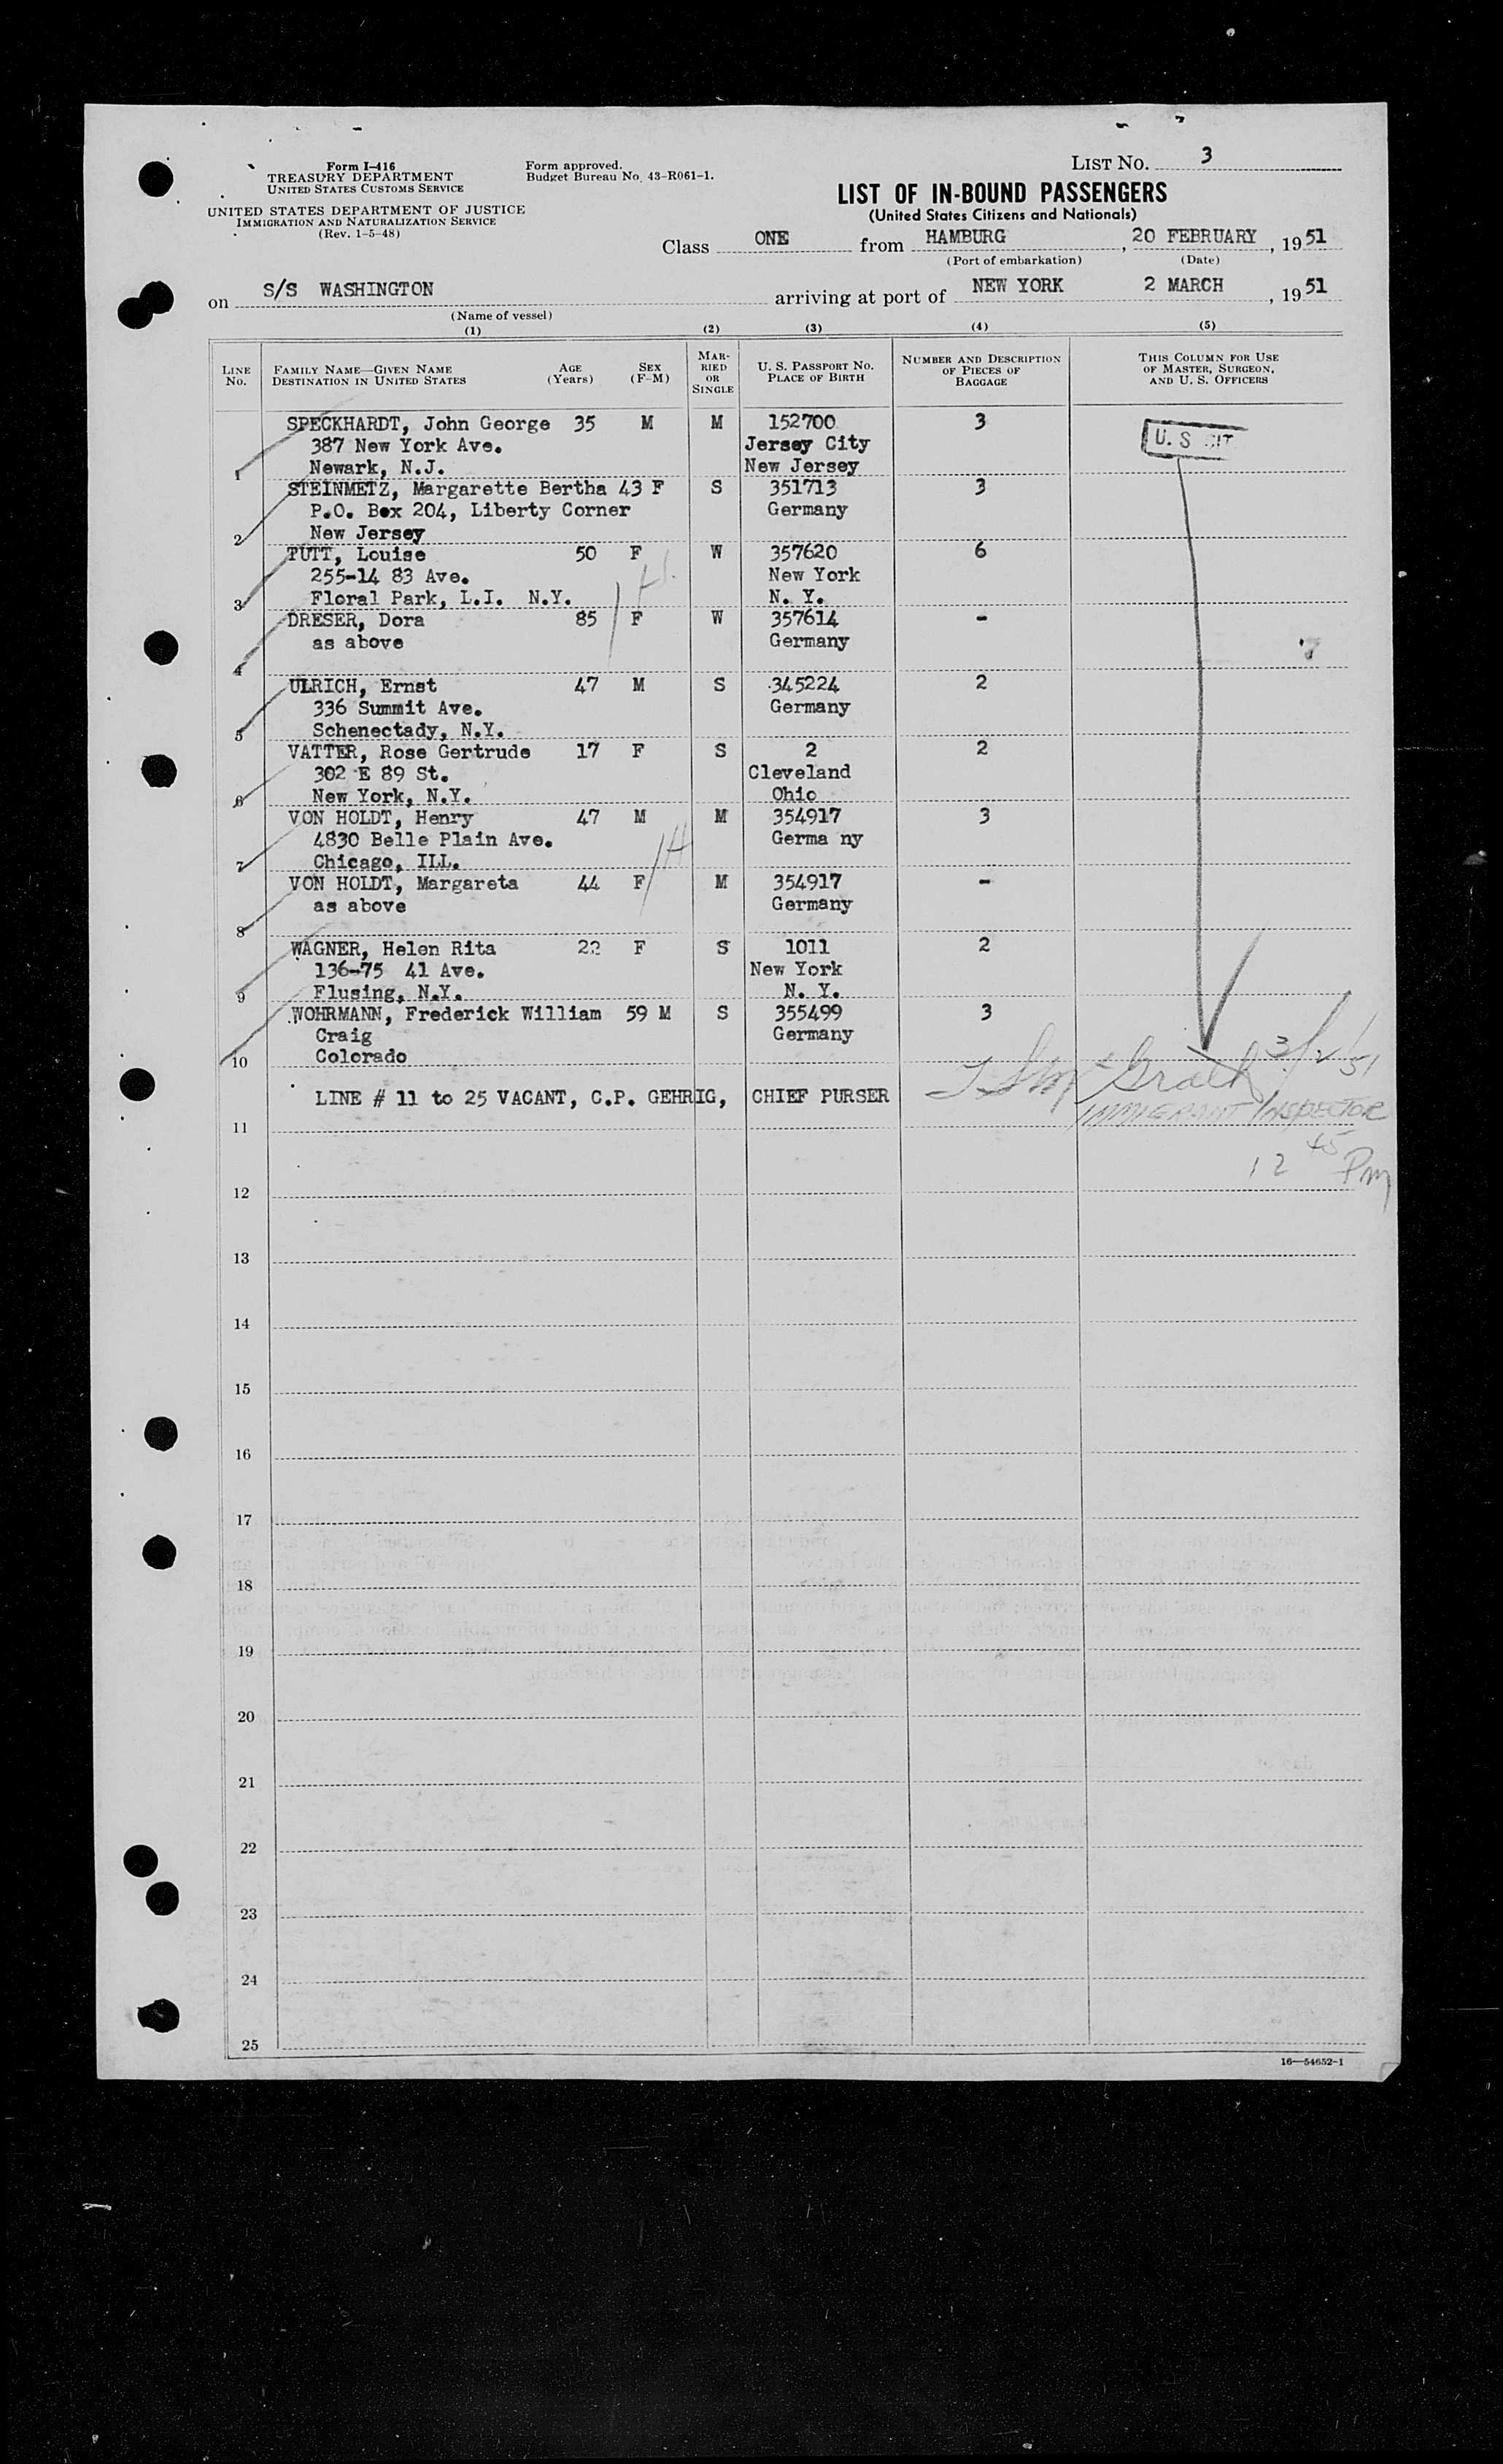 Form I-416
TREASURY DEPARTMENT
UNITED STATES CUSTOMS SERVICE
UNITED STATES DEPARTMENT OF JUSTICE
IMMIGRATION AND NATURALIZATION SERVICE
(Rev. 1-5-48)
Form approved.
Budget Bureau No. 43-R061-1.
LIST NO. 3
LIST OF IN-BOUND PASSENGERS
(United States Citizens and Nationals)
Class ONE from HAMBURG, 20 FEBRUARY, 1951
(Port of embarkation) (Date)
on S/S WASHINGTON arriving at port of NEW YORK 2 MARCH, 1951
(Name of vessel)
(1) (2) (3) (4) (5)
LINE No. FAMILY NAME—GIVEN NAME DESTINATION IN UNITED STATES AGE (Years) SEX (F-M) MARRIED OR SINGLE U. S. PASSPORT NO. PLACE OF BIRTH NUMBER AND DESCRIPTION OF PIECES OF BAGGAGE THIS COLUMN FOR USE OF MASTER, SURGEON, AND U. S. OFFICERS
SPECKHARDT, John George 35 M M 152700 3
387 New York Ave. Jersey City U. S CIT
1 Newark, N.J. New Jersey
STEINMETZ, Margarette Bertha 43 F S 351713 3
P.O. Box 204, Liberty Corner Germany
2 New Jersey
TUTT, Louise 50 F W 357620 6
255-14 83 Ave. New York
3 Floral Park, L.I. N.Y. N. Y.
DRESER, Dora 85 F W 357614 -
as above Germany
4
ULRICH, Ernst 47 M S 345224 2
336 Summit Ave. Germany
5 Schenectady, N.Y.
VATTER, Rose Gertrude 17 F S 2 2
302 E 89 St. Cleveland
6 New York, N.Y. Ohio
VON HOLDT, Henry 47 M M 354917 3
4830 Belle Plain Ave. Germa ny
7 Chicago, ILL.
VON HOLDT, Margareta 44 F M 354917 -
as above Germany
8
WAGNER, Helen Rita 22 F S 1011 2
136-75 41 Ave. New York
9 Flusing, N.Y. N. Y.
WOHRMANN, Frederick William 59 M S 355499 3
Craig Germany
10 Colorado
3/2/51
LINE # 11 to 25 VACANT, C.P. GEHRIG, CHIEF PURSER
IMMIGRANT INSPECTOR
11
12 45 Pm
12
13
14
15
16
17
18
19
20
21
22
23
24
25
16—54652-1